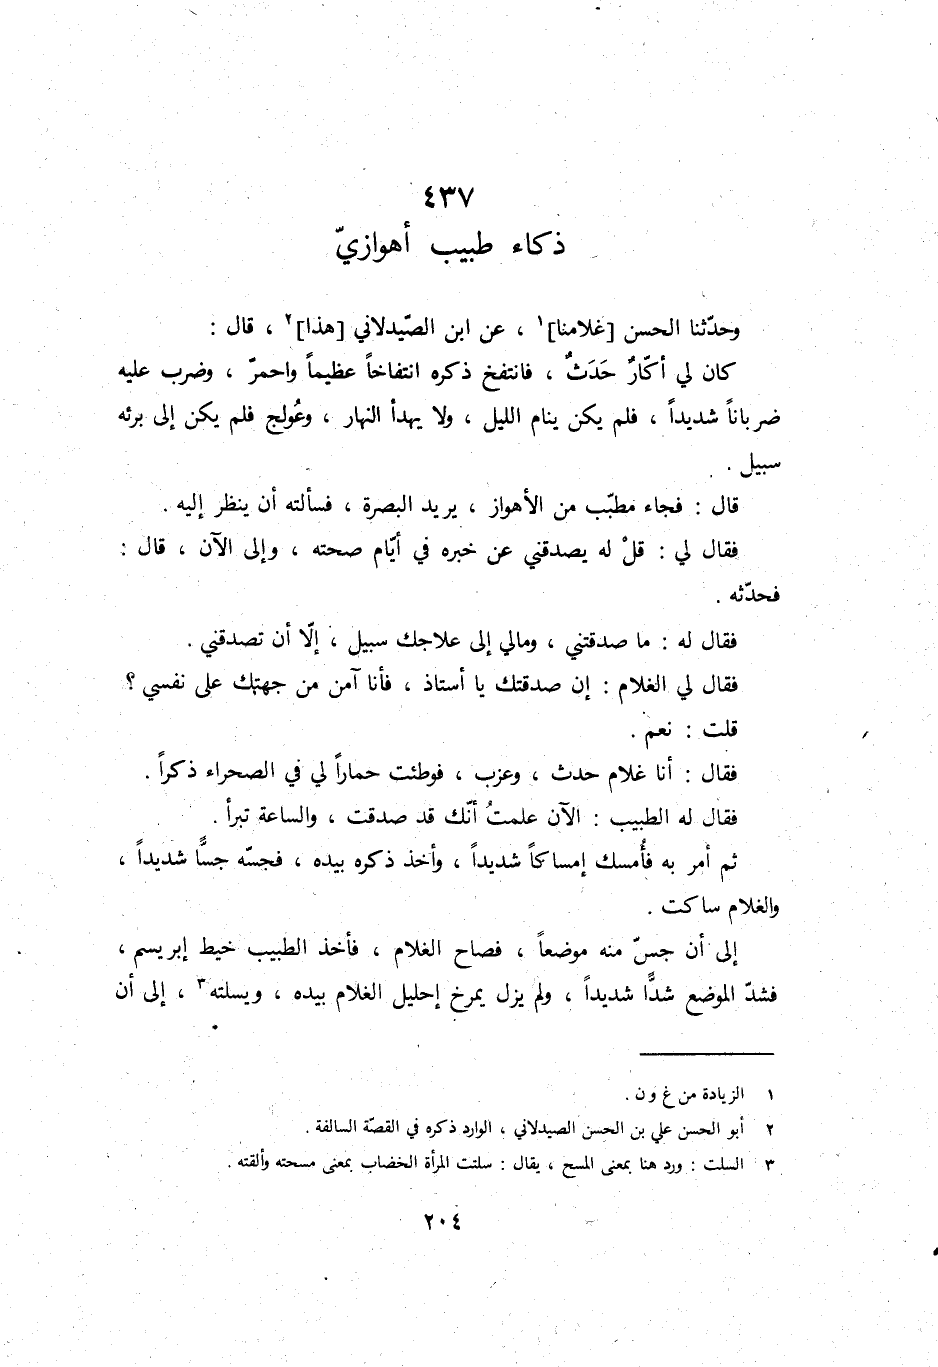 ٤٣٧
ذكاء طبيب أهوازيّ
وحدّثنا الحسن [غلامنا]١ ، عن ابن الصّيدلاني [هذا]٢ ، قال :
كان لي أكّارٌ حَدَثٌ ، فانتفخ ذكره انتفاخاً عظيماً واحمرّ ، وضرب عليه
ضرباناً شديداً ، فلم يكن ينام الليل ، ولا يهدأ النهار ، وعُولج فلم يكن إلى برئه
سبيل .
قال : فجاء مطبّب من الأهواز ، يريد البصرة ، فسألته أن ينظر إليه .
فقال لي : قلْ له يصدقني عن خبره في أيّام صحته ، وإلى الآن ، قال :
فحدّثه .
فقال له : ما صدقتني ، ومالي إلى علاجك سبيل ، إلّا أن تصدقني .
فقال لي الغلام : إن صدقتك يا أستاذ ، فأنا آمن من جهتك على نفسي ؟
قلت : نعم .
فقال : أنا غلام حدث ، وعزب ، فوطئت حماراً لي في الصحراء ذكراً .
فقال له الطبيب : الآن علمتُ أنّك قد صدقت ، والساعة تبرأ .
ثم أمر به فأُمسك إمساكاً شديداً ، وأخذ ذكره بيده ، فجسّه جسًّا شديداً ،
والغلام ساكت .
إلى أن جسّ منه موضعاً ، فصاح الغلام ، فأخذ الطبيب خيط إبريسم ،
فشدّ الموضع شدًّا شديداً ، ولم يزل يمرخ إحليل الغلام بيده ، ويسلته٣ ، إلى أن
١ الزيادة من غ و ن .
٢ أبو الحسن علي بن الحسن الصيدلاني ، الوارد ذكره في القصّة السالفة .
٣ السلت : ورد هنا بمعنى المسح ، يقال : سلتت المرأة الخضاب بمعنى مسحته وألقته .
٢٠٤